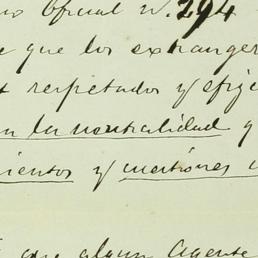 Oficial N. 294
e que los extranger
t respetados y efije
n la neutralidad y
ientos y cuestiones
que algun Agente